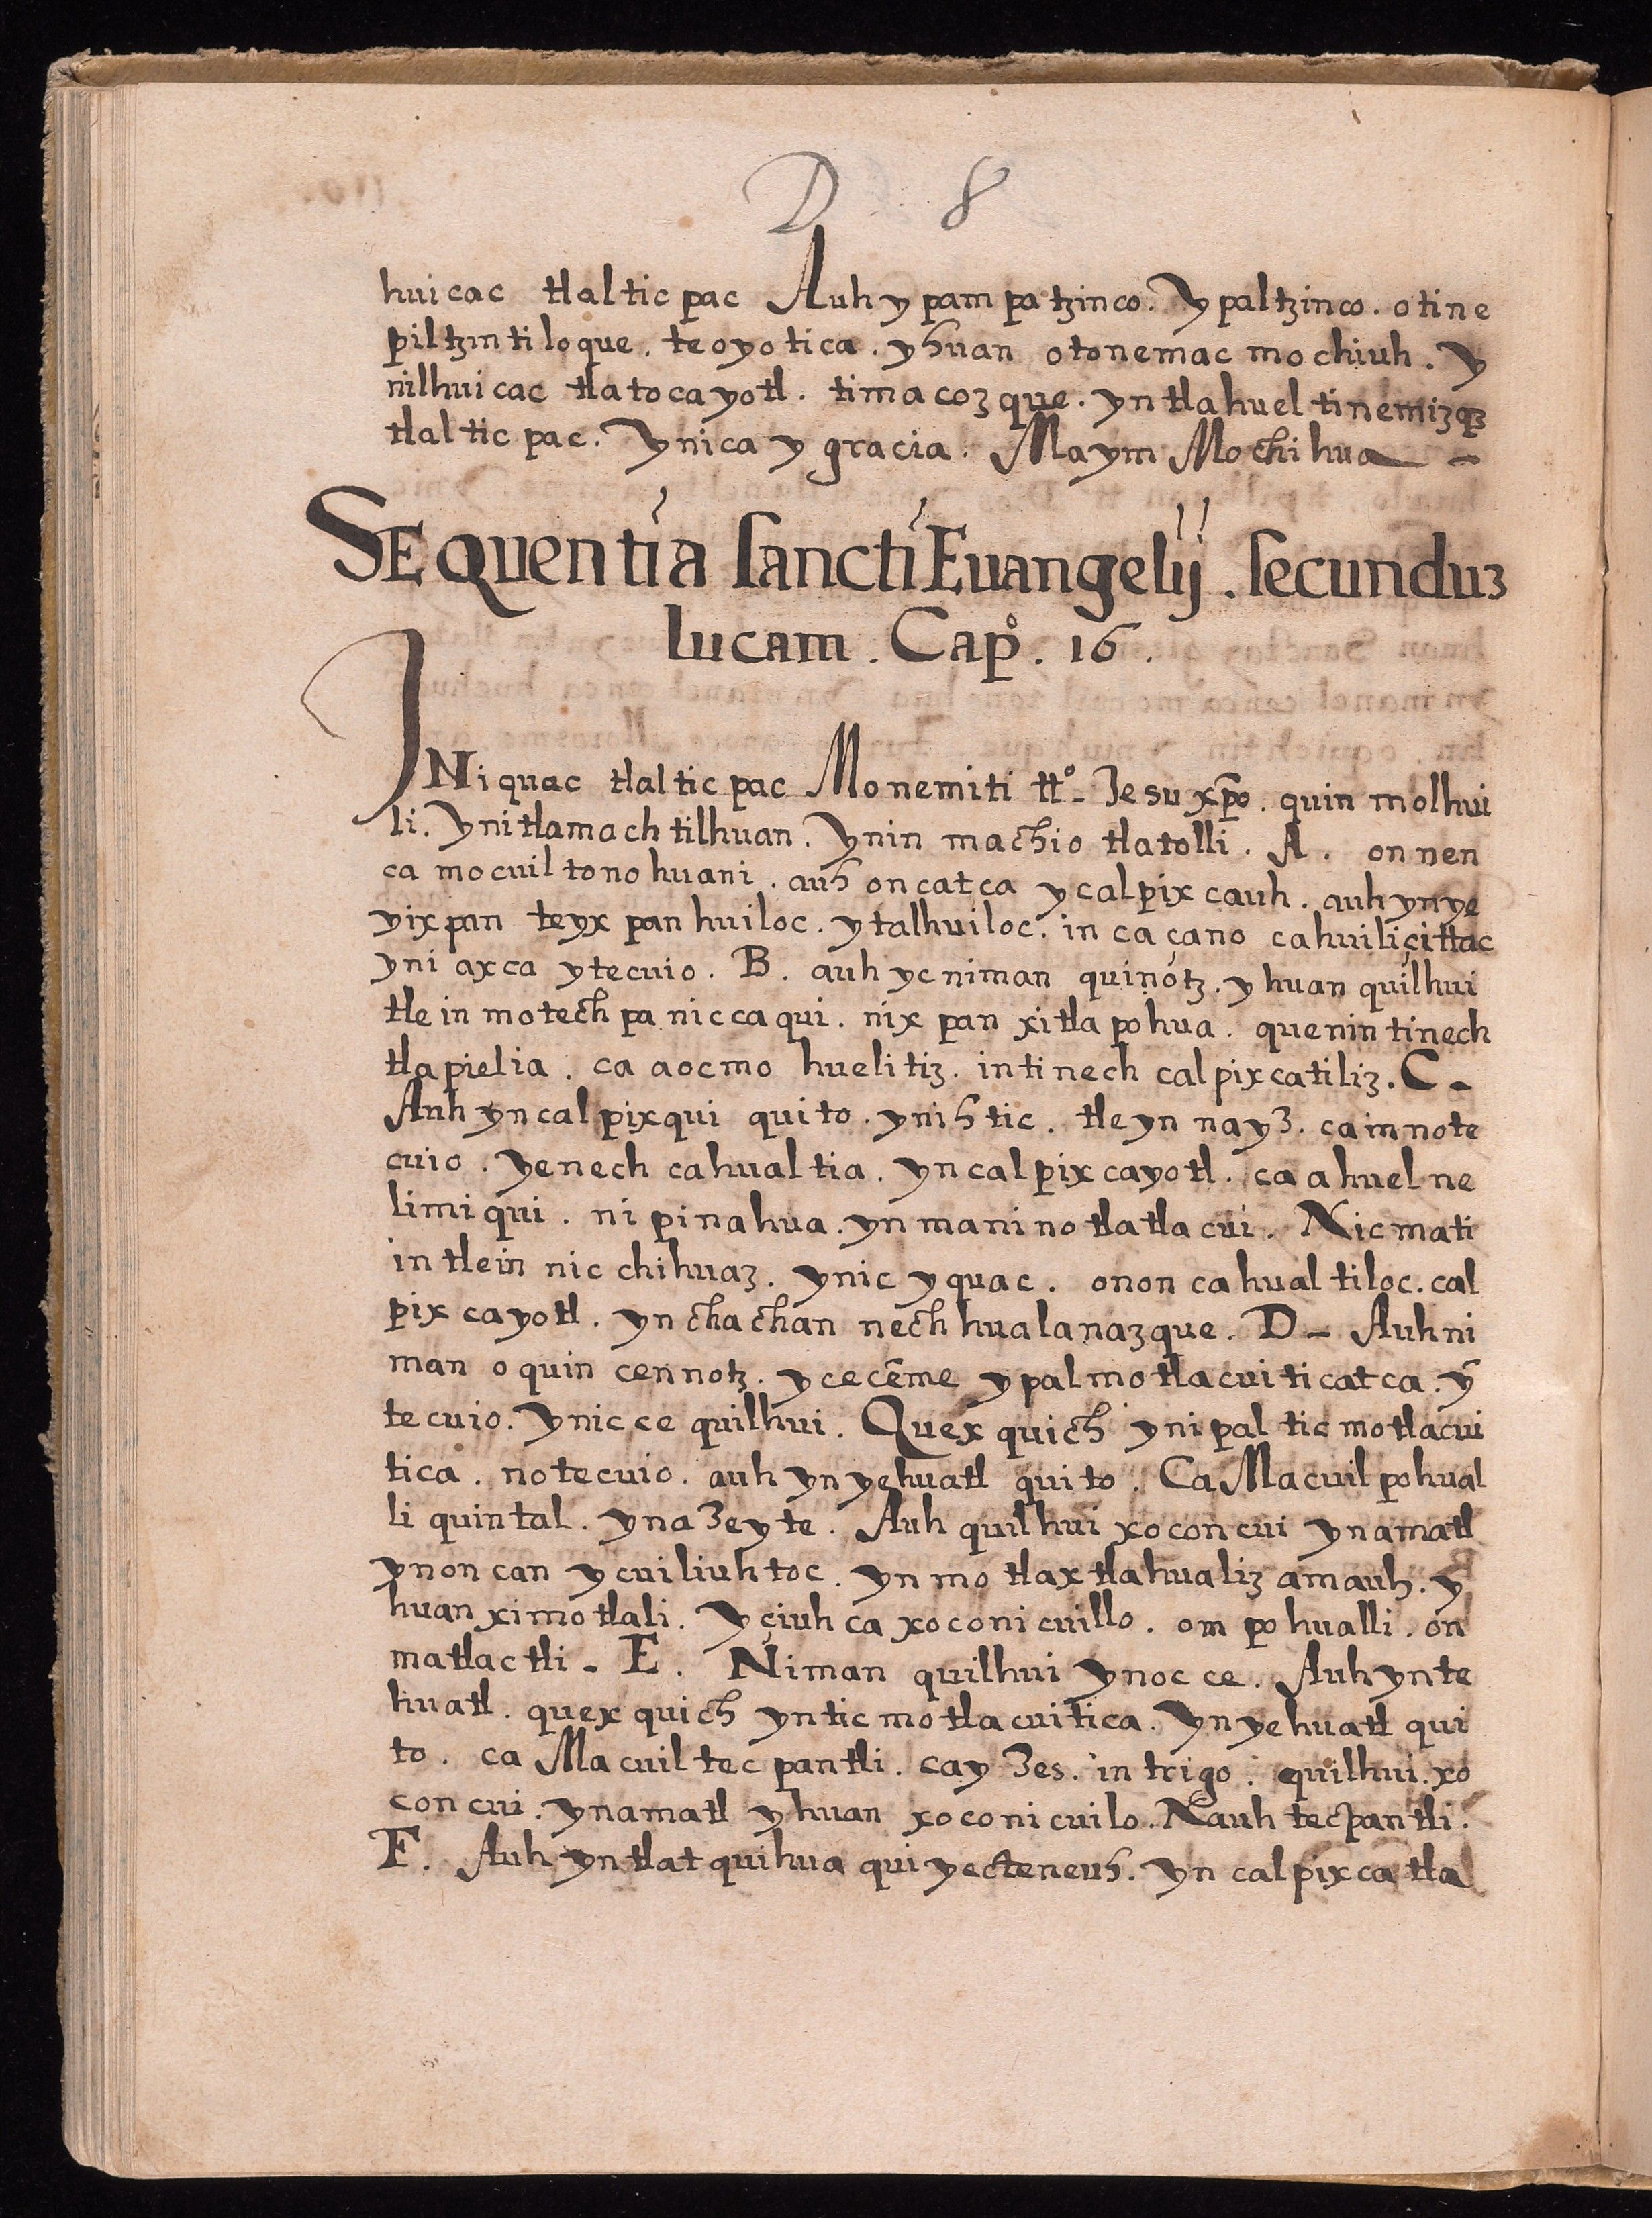 D 8
huicac tlaltic pac Auh y pam pa tzinco. Y paltzinco. otine
piltzintiloque. teoyotica. yhuan otonemac mochiuh. y
nilhuicac tlatocayotl. timacozque. yn tlahuel tinemizqz
tlaltic pac. Ynica y gracia. Maym Mochihua –
SEquentia sancti Euangelij. secunduz
lucam. Capº. 16.
INiquac tlaltic pac Monemiti ttº – Jesu xpo. quin molhui
li. Ynitlamachtilhuan. Ynin machio tlatolli. A. onnen
ca mocuiltonohuani. auh oncatca ycalpixcauh. auh ynye
yixpan teyxpanhuiloc. ytalhuiloc. in ca çano cahuiliçittac
yni axca ytecuio. B. auh yc niman quinotz. yhuan quilhui
tle in motechpa niccaqui. nixpan xitlapohua. quenin tinech
tlapielia. ca aocmo huelitiz. intinech calpixcatiliz. C –
Auh yn calpixqui quito. ynihtic. tle yn nayz. ca in note
cuio. ye nech cahualtia. yn calpixcayotl. ca ahuel ne
limiqui. ni pinahua. yn mani notlatlacui. Nicmati
in tlein nic chihuaz. ynic yquac. onon cahualtiloc. cal
pixcayotl. yn chachan nechhualanazque. D – Auh ni
man oquin cennotz. ycecēme ypal motlacuiticatca. ȳ
tecuio. Ynic ce quilhui. Quexquich ynipal tic motlacui
tica. notecuio. auh yn yehuatl quito. Ca Macuilpohual
li quintal. yn a3eyte. Auh quilhui xoconcui ynamatl
ynoncan ycuiliuhtoc. yn motlaxtlahualiz amauh. y
huan ximotlali. Yçiuhca xoconicuillo. ompohualli. on
matlactli – E. Niman quilhui ynoc ce. Auh ynte
huatl. quexquich yntic motlacuitica. Yn yehuatl qui
to. ca Macuiltecpantli. cay3es. in trigo. quilhui. xo
concui. ynamatl yhuan xoconicuilo. Nauh tecpantli.
F. Auh yn tlatquihua quiyecteneuh. Yn calpixca tla